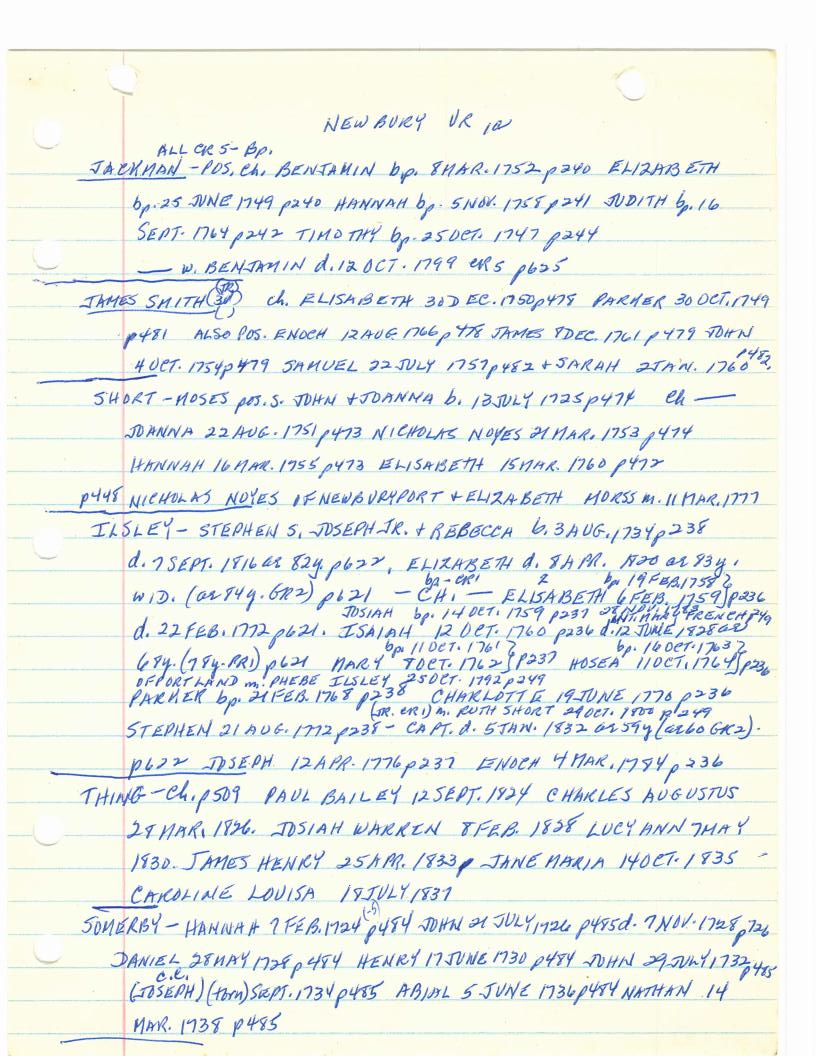 NEWBURY VR
ALL CR5-Bp.
JACKMAN - POS. Ch. BENJAMIN bp. 8 MAR. 1752 p240 ELIZABETH
bp. 25 JUNE 1749 p240 HANNAH bp. 5 NOV. 1758 p241 JUDITH bp. 16
SEPT. 1764 p242 TIMOTHY bp. 25 OCT. 1747 p244
— W. BENJAMIN d. 12 OCT. 1799 CR5 p625
JR
JAMES SMITH (3d) ch. ELISABETH 30 DEC. 1750 p478 PARKER 30 OCT. 1749
p481 ALSO POS. ENOCH 12 AUG. 1766 p478 JAMES 8 DEC. 1761 p479 JOHN
4 OCT. 1754 p479 SAMUEL 22 JULY 1757 p482 + SARAH 2 JAN. 1760 p482,
SHORT - MOSES pos. s. JOHN + JOANNA b. 13 JULY 1725 p474 Ch —
JOANNA 22 AUG. 1751 p473 NICHOLAS NOYES 21 MAR. 1753 p474
HANNAH 16 MAR. 1755 p473 ELISABETH 15 MAR. 1760 p472
p448 NICHOLAS NOYES OF NEWBURYPORT + ELIZABETH MORSS m. 11 MAR. 1777
ILSLEY - STEPHEN S. JOSEPH JR. + REBECCA b. 3 AUG. 1734 p238
d. 7 SEPT. 1816 ae 82y. p622, ELIZABETH d. 8 APR. 1820 ae 83y.
bp - CR1 2 bp. 19 FEB. 1758}
WID. (ae 84y. GR2) p621 - CH. - ELISABETH 6 FEB. 1759} p236
JOSIAH bp. 14 OCT. 1759 p237 28 NOV. 1783 INT. MARY FRENCH p249
d. 22 FEB. 1772 p621. ISAIAH 12 OCT. 1760 p236 d. 12 JUNE 1828 ae
bp. 11 OCT. 1761} bp. 16 OCT. 1763}
68y. (78y. PR1) p621 MARY 8 OCT. 1762} p237 HOSEA 11 OCT. 1764} p236
OF PORTLAND m. PHEBE ILSLEY 25 OCT. 1792 p249
PARKER bp. 21 FEB. 1768 p238 CHARLOTTE 19 JUNE 1770 p236
(JR. CR1) m. RUTH SHORT 29 OCT. 1800 p249
STEPHEN 21 AUG. 1772 p238 - CAPT. d. 5 JAN. 1832 ae 59y (ae 60 GR2).
p622 JOSEPH 12 APR. 1776 p237 ENOCH 4 MAR. 1784 p236
THING - Ch. p509 PAUL BAILEY 12 SEPT. 1824 CHARLES AUGUSTUS
28 MAR. 1826. JOSIAH WARREN 8 FEB. 1828 LUCY ANN 7 MAY
1830. JAMES HENRY 25 APR. 1833 p JANE MARIA 14 OCT. 1835 -
CAROLINE LOUISA 18 JULY 1837
SOMERBY - HANNAH 7 FEB. 1724 (-5) p484 JOHN 21 JULY 1726 p485 d. 7 NOV. 1728 p726
DANIEL 28 MAY 1728 p484 HENRY 17 JUNE 1730 p484 JOHN 29 JULY 1732 p485
C.C.
(JOSEPH) (torn) SEPT. 1734 p485 ABIAL 5 JUNE 1736 p484 NATHAN 14
MAR. 1738 p485